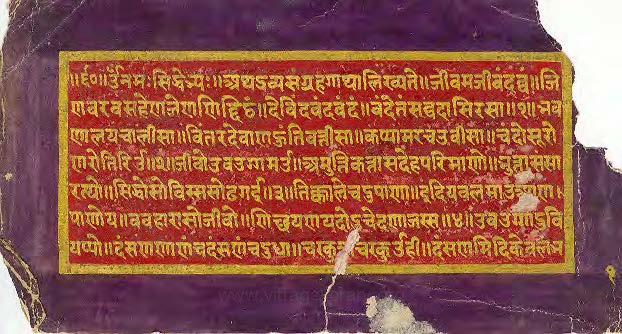 ॥६०॥उँनमःसिद्धेभ्यः॥अथद्रव्यसंग्रहगाथालिख्यते॥जीवमजीवंदव्वं॥जि
णवरवसहेणजेणणिद्दिठं॥देविंदवंदवंदं॥वंदेतंसव्वदासिरसा॥१॥भव
णालयचालीसा॥वितरदेवाणऊंतिबत्तीसा॥कप्पामरचउवीसा॥चंदोसूरो
णरोतिरिउ॥२॥जीवोउवउगमउ॥अमुत्तिकत्तासदेहपरिमाणो॥भुत्तासंसा
रत्थो॥सिद्धोसोविस्ससोढगई॥३॥तिक्कालेचदुपाणा॥इंदियबलमाउ
पाणोय॥ववहारासोजीवो॥णिच्छयणयदोदुचेदणाजस्स॥४॥उवउगोदुवि
यप्पो॥दंसणणाणंचदंसणंचदुधा॥चरकुअचरकुउही॥दंसणमधिकेवलं